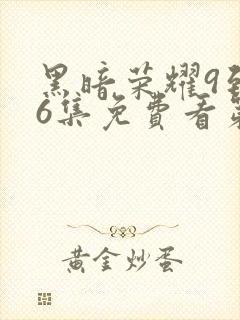 黑暗荣耀9到
6集免費看第
黄金炒蛋